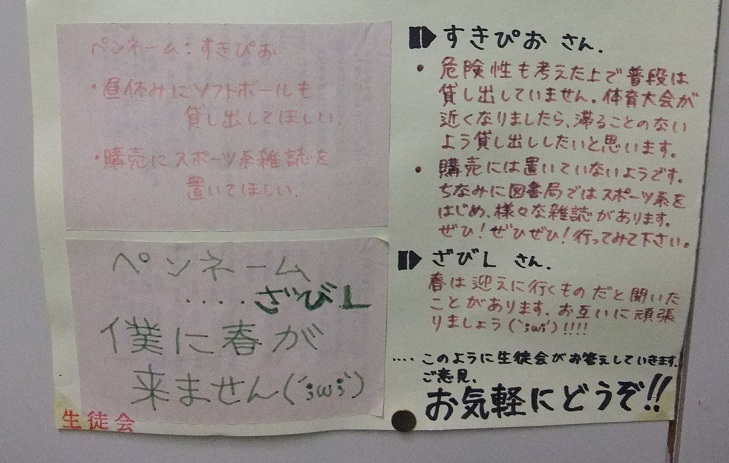 ペンネーム:すきぴお
・昼休みにソフトボールも
貸し出してほしい.
・購売にスポーツ系雑誌を
置いてほしい.
ペンネーム
‥‥ざびL
僕に春が
来ません(´;ω;`)
生徒会
すきぴお さん.
• 危険性も考えた上で普段は
貸し出していません。体育大会が
近くなりましたら、滞ることのない
よう貸し出ししたいと思います。
• 購売には置いていないようです。
ちなみに図書局ではスポーツ系を
はじめ、様々な雑誌があります。
ぜひ!ぜひぜひ!行ってみて下さい。
ざびL さん.
春は迎えに行くものだと聞いた
ことがあります. お互いに頑張
りましょう(´;ω;`)!!!!
‥‥このように生徒会がお答えしていきます.
ご意見、
お気軽にどうぞ!!